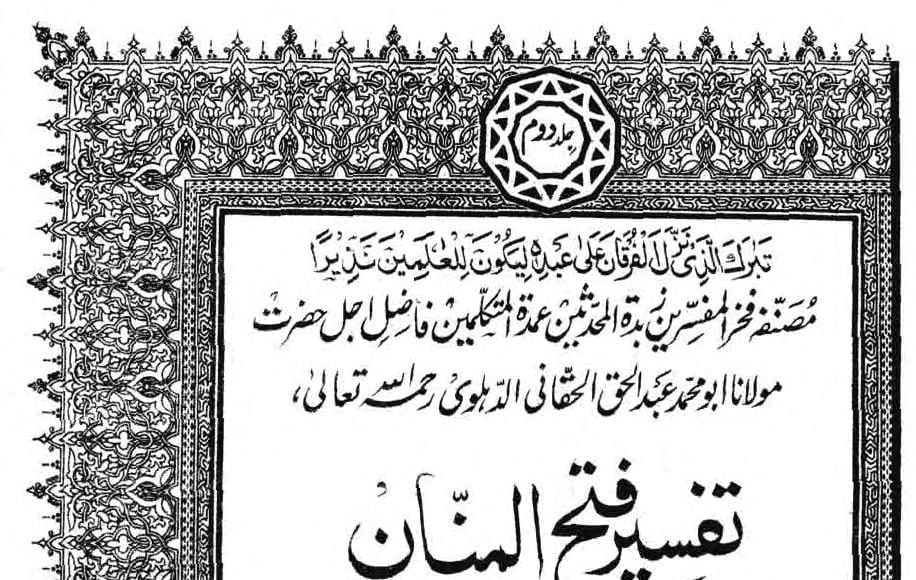 جلد دوم
تَبٰرَكَ الَّذِیْ نَزَّلَ الْفُرْقَانَ عَلٰی عَبْدِہٖ لِیَكُوْنَ لِلْعٰلَمِیْنَ نَذِیْرًا
مُصَنّفہ فخر المفسرین زبدۃ المحدّثین عمدۃ المتکلّمین فاضِلِ اجل حضرت
مولانا ابو محمّد عبد الحق الحقّانی الدّہلوی رحمہ اللہ تعالیٰ،
تفسیر فتح المنّان